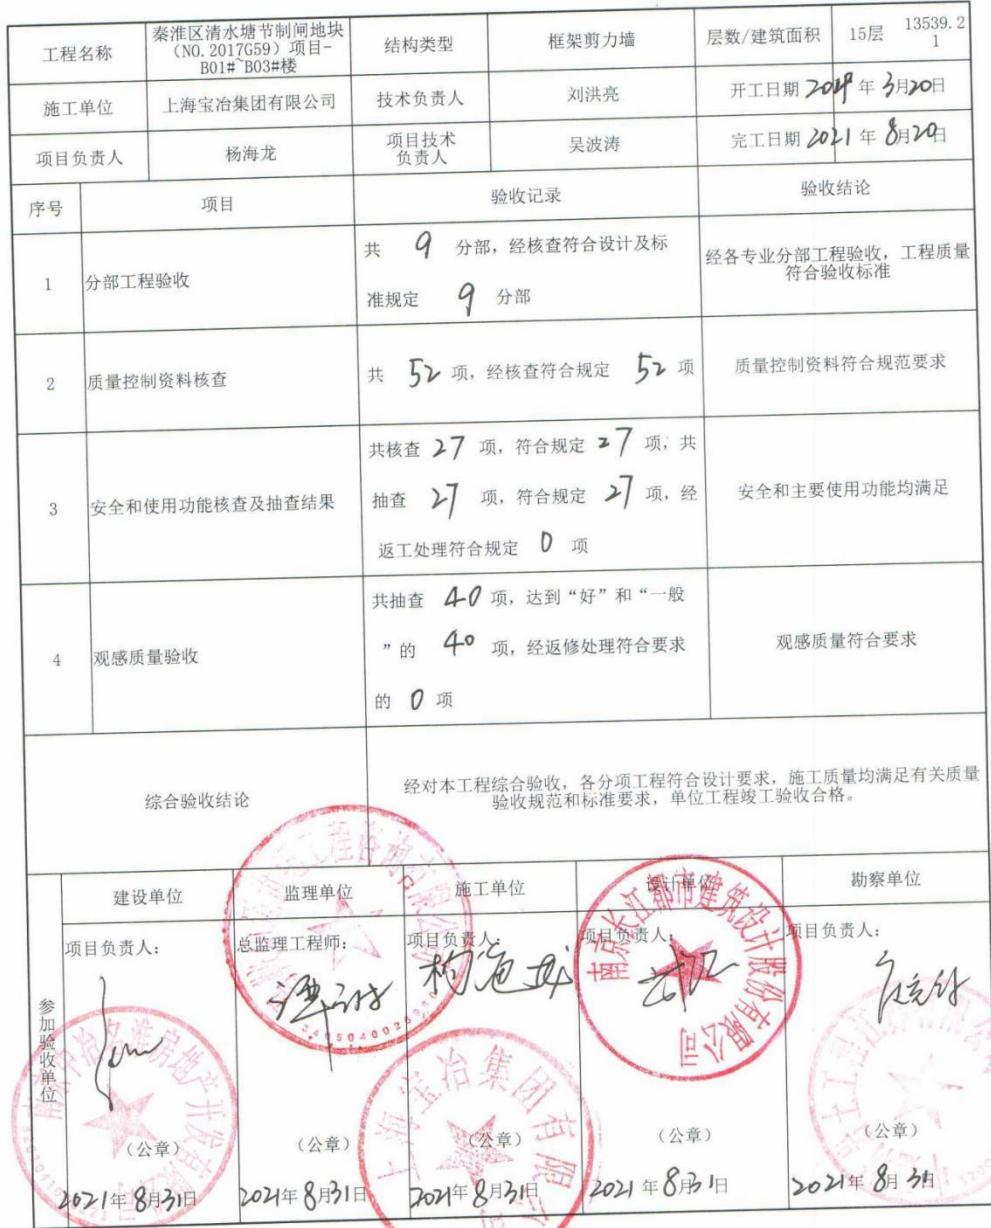 工程名称
秦淮区清水塘节制闸地块
（NO.2017G59）项目-
B01#~B03#楼
结构类型
框架剪力墙
层数/建筑面积
15层
13539.2
1
施工单位
上海宝冶集团有限公司
技术负责人
刘洪亮
开工日期 2019 年 3月20日
项目负责人
杨海龙
项目技术
负责人
吴波涛
完工日期 2021 年 8月20日
序号
项目
验收记录
验收结论
1
分部工程验收
共 9 分部，经核查符合设计及标
准规定 9 分部
经各专业分部工程验收，工程质量
符合验收标准
2
质量控制资料核查
共 52 项，经核查符合规定 52 项
质量控制资料符合规范要求
3
安全和使用功能核查及抽查结果
共核查 27 项，符合规定 27 项，共
抽查 27 项，符合规定 27 项，经
返工处理符合规定 0 项
安全和主要使用功能均满足
4
观感质量验收
共抽查 40 项，达到“好”和“一般
”的 40 项，经返修处理符合要求
的 0 项
观感质量符合要求
综合验收结论
经对本工程综合验收，各分项工程符合设计要求，施工质量均满足有关质量
验收规范和标准要求，单位工程竣工验收合格。
参加验收单位
建设单位
监理单位
施工单位
设计单位
勘察单位
项目负责人：
总监理工程师：
项目负责人：
项目负责人：
项目负责人：
杨海龙
南京长江都市建筑设计股份有限公司
上海宝冶集团有限公司
（公章）
（公章）
（公章）
（公章）
（公章）
2021年8月31日
2021年8月31日
2021年8月31日
2021年8月31日
2021年8月31日